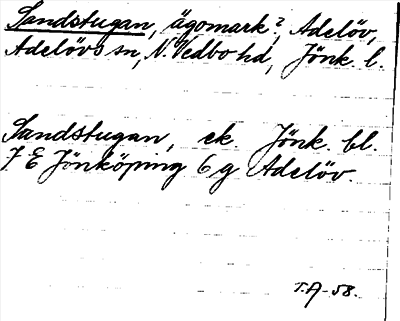 Sandstugan, ägomark?, Adelöv,
Adelövs sn, N. Vedbo hd, Jönk. l.
Sandstugan, ek. Jönk. bl.
7 E Jönköping 6 g Adelöv.
T.A-58.